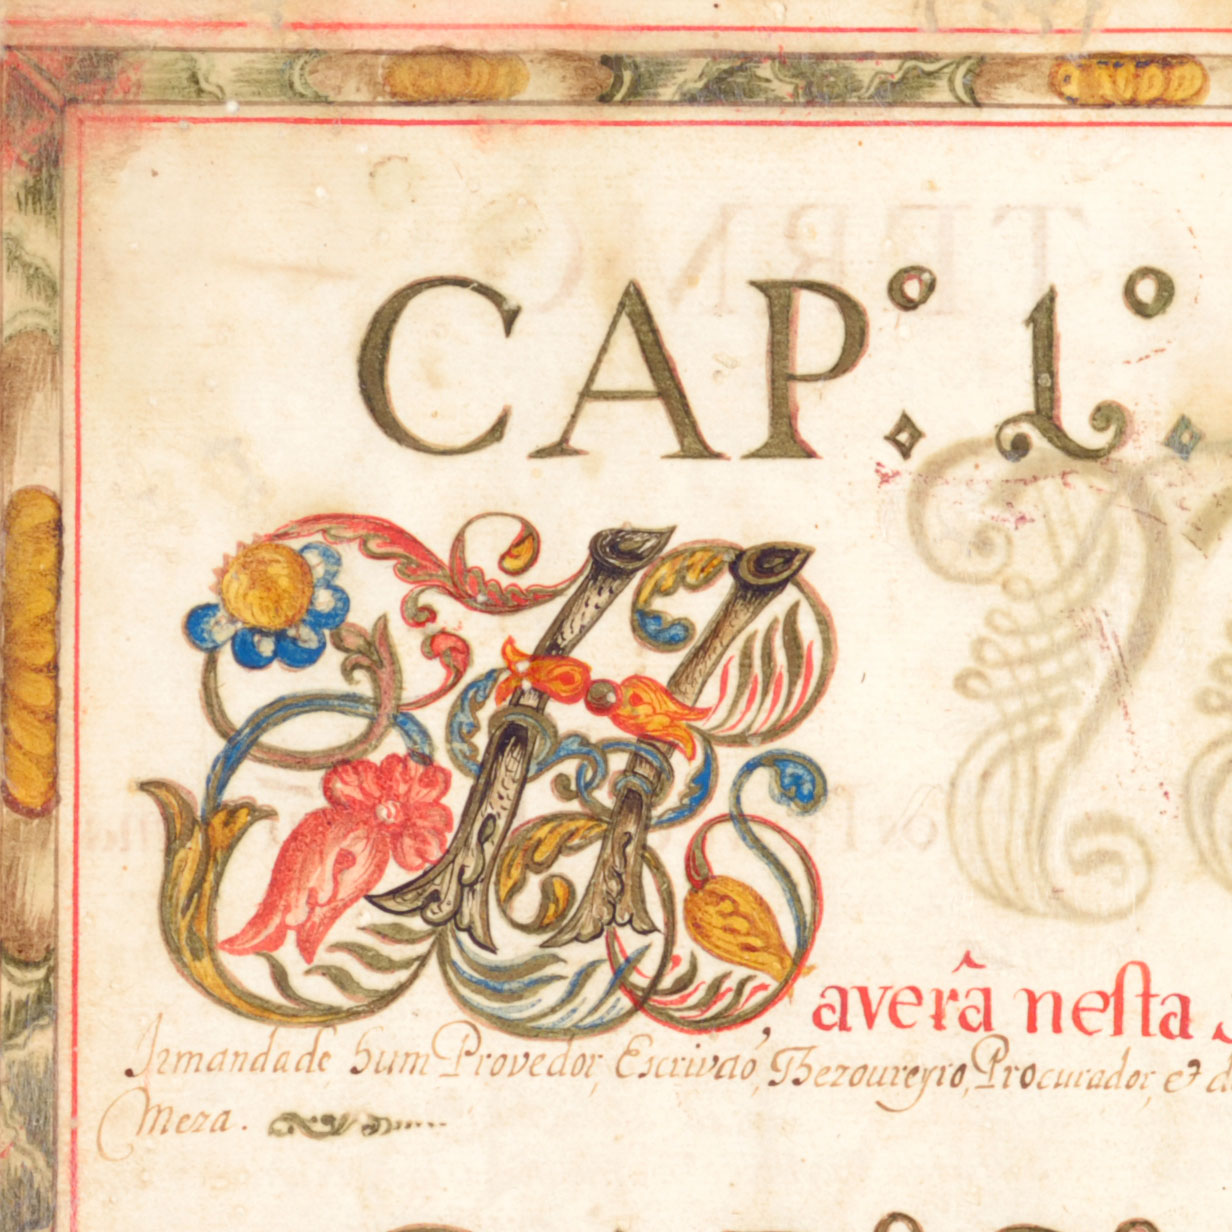 CAP.º 1.º
H
averâ nesta
Irmandade hum Provedor, Escrivaõ, Thezoureyro, Procurador, et d
Meza.